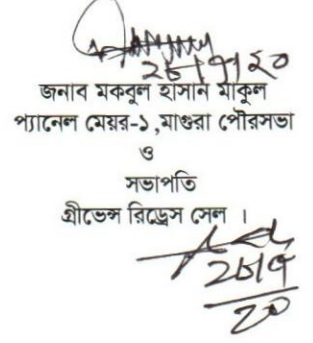 ২৮/৭/২০
জনাব মকবুল হাসান মাকুল
প্যানেল মেয়র-১,মাগুরা পৌরসভা
ও
সভাপতি
গ্রীভেন্স রিড্রেস সেল ।
২৮/৭
২০